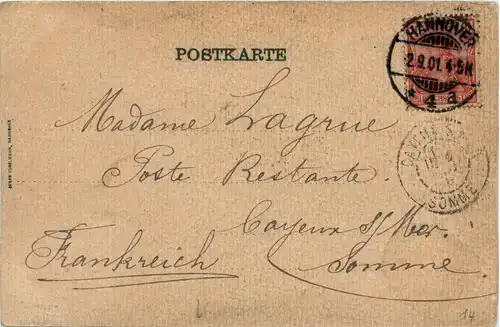 POSTKARTE
HANNOVER
2.9.01. 4-5N
* 4 a.
Madame Lagrue
Poste Restante.
Cayeux s/Mer.
Somme.
Frankreich
SOMME
14